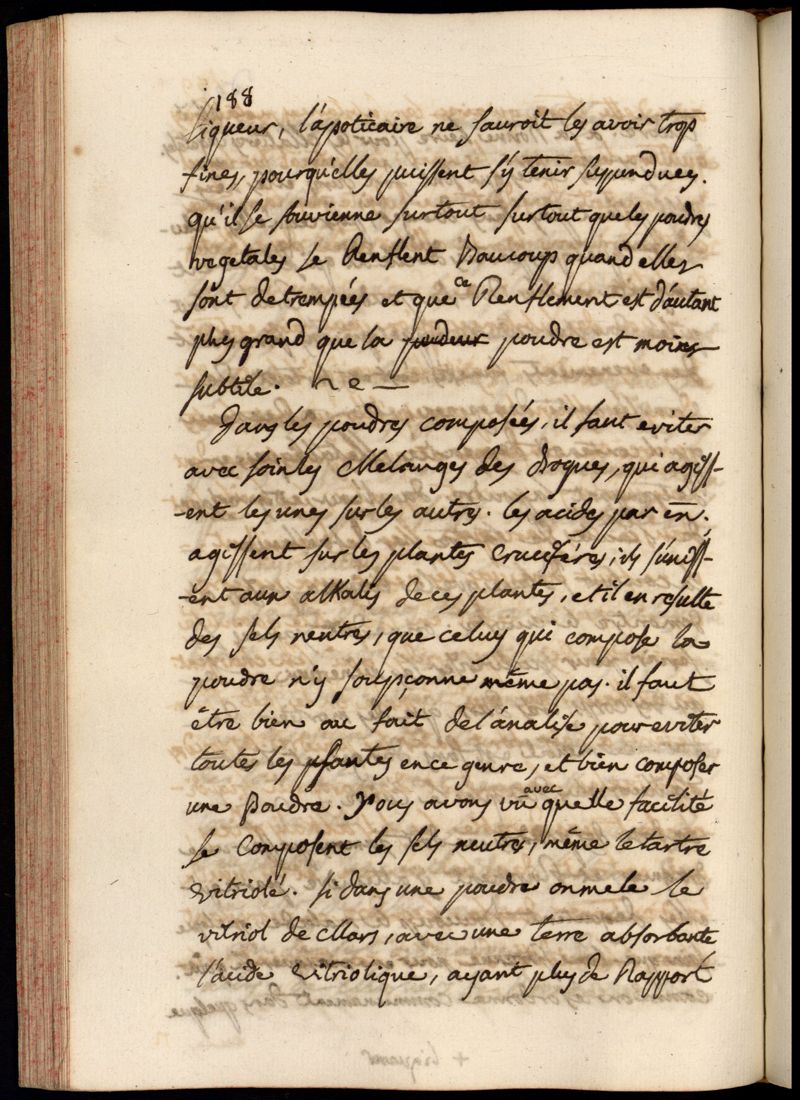 188
liqueur, l'apoticaire ne sauroit les avoir trop
fines, pourqu'elles puissent s'y tenir supendues.
qu'il se souvienne surtout surtout que les poudres
vegetales se Renflent Baucoup quand elles
sont detrempées et que ce Renflement est d'autant
plus grand que la poudeur poudre est moins
subtile.
Dans les poudres composées, il faut eviter
avec soin les Melanges des Drogues, qui agiss-
-ent les unes sur les autres. les acides par ex.
agissent sur les plantes cruciféres, ils s'uniss-
-ent aux alkalis de ces plantes, et il en resulte
des sels neutres, que celuy qui compose la
poudre n'y soupçonne même pas. il faut
être bien au fait de l'analise pour eviter
toutes les fautes en ce genre, et bien composer
une Poudre. Nous avons vû avec quelle facilité
se composent les sels neutres, même le tartre
vitriolé. si dans une poudre on mele le
vitriol de Mars, avec une terre absorbante
l'acide vitriolique, ayant plus de Rapport